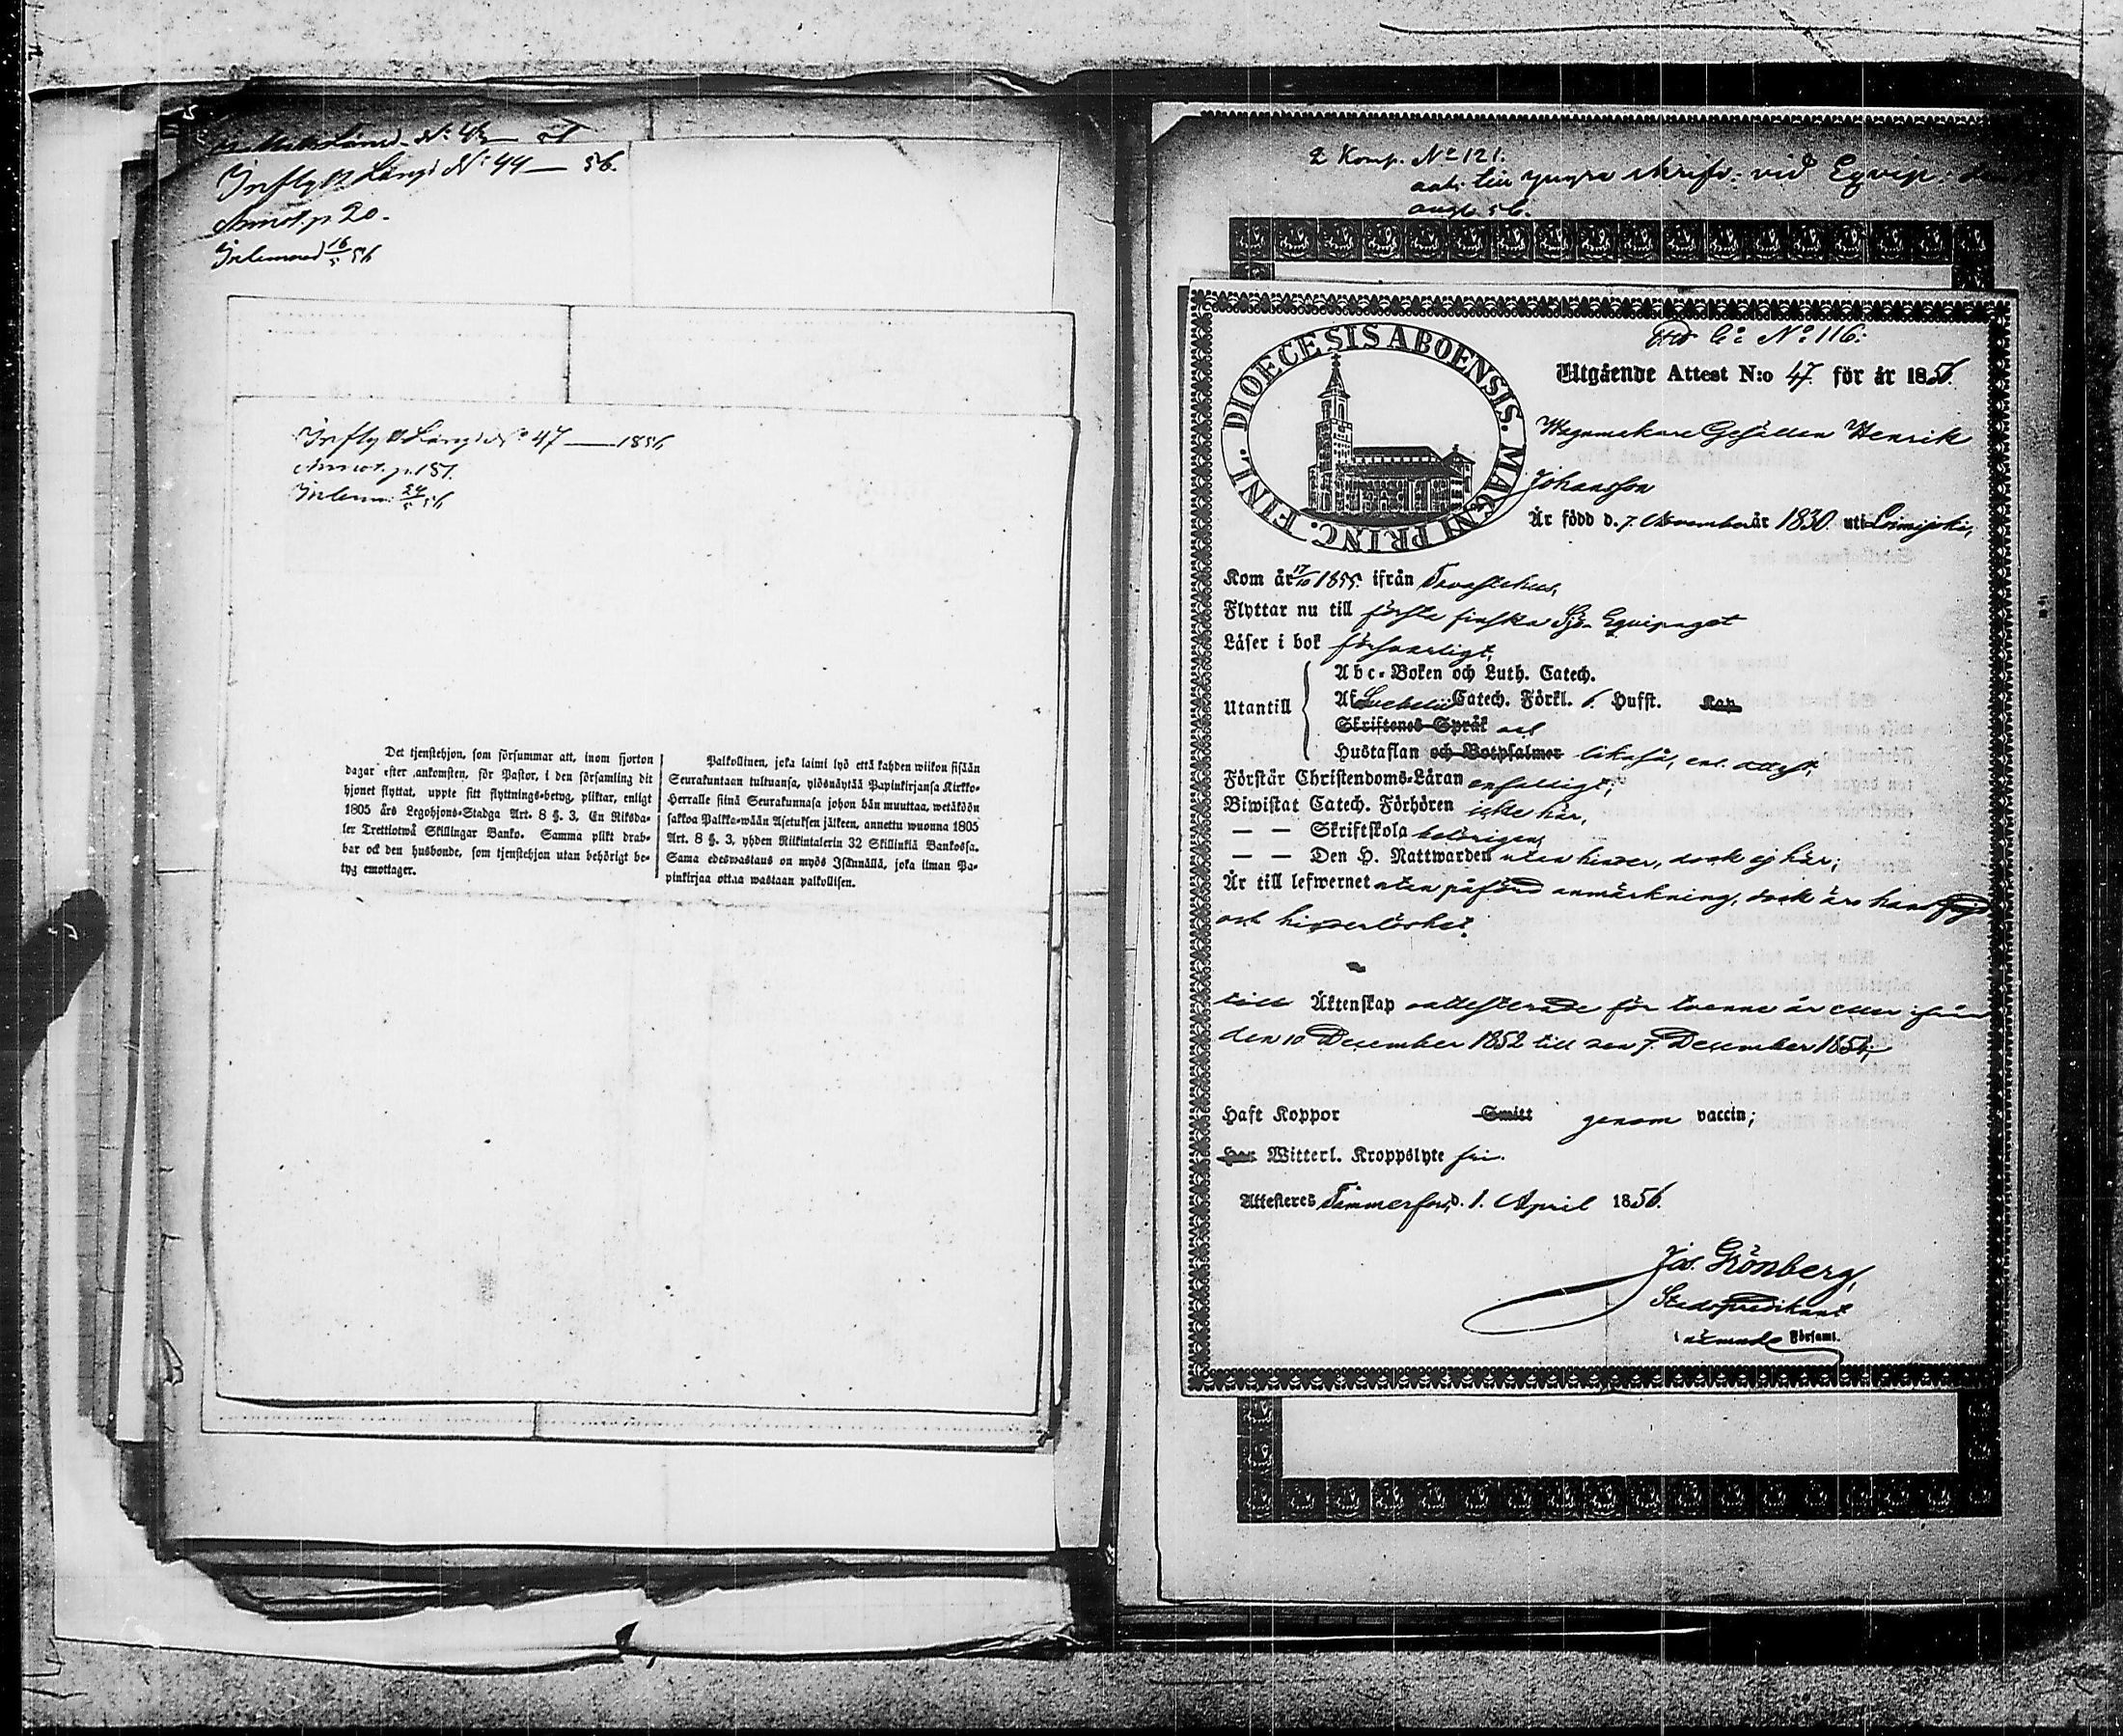 Inflyttn Längd No: 44 — 56.
Annot. p. 20.
Inlemnad 16/5 56
Inflyttn Längd No 47 — 1856
Annot. p. 157.
Inlemn. 24/5 56
Det tjenstehjon, som försummar att, inom fjorton
dagar efter ankomsten, för Pastor, i den församling dit
hjonet flyttat, uppte sitt flyttnings-betyg, pliktar, enligt
1805 års Legohjons-Stadga Art. 8 §. 3, En Riksda-
ler Trettiotwå Skillingar Banko. Samma plikt drab-
bar ock den husbonde, som tjenstehjon utan behörigt be-
tyg emottager.
Palkollinen, joka laimi lyö että kahden wiikon sisään
Seurakuntaan tultuansa, ylösnäytää Papinkirjansa Kirkko-
Herralle siinä Seurakunnasa johon hän muuttaa, wetäköön
sakkoa Palkka-wään Asetuksen jälkeen, annettu wuonna 1805
Art. 8 §. 3, yhden Riikintalerin 32 Skillinkiä Bankossa.
Sama edeswastaus on myös Isännällä, joka ilman Pa-
pinkirjaa ottaa wastaan palkollisen.
2 Komp. No 121.
vid Eqvip:
DIOECESIS ABOENSIS. MAGNI PRINC. FINL.
No: 116:
Utgående Attest N:o 47 för år 1856.
Wagnmakare Gesällen Henrik
Johansson
Är född d. 7 November år 1830 uti Loimijoki,
Kom år 17/10 1855 ifrån Tavastehus,
Flyttar nu till första finska Sjö-Equipaget
Läser i bok försvarligt,
Utantill
Abc-Boken och Luth. Catech.
Af Svebelii Catech. Förkl. 6. Hufst. Kap
Skriftenes Språk och
Hustaflan och Botpsalmer likaså, enl. attest,
Förstår Christendoms-Läran enfaldigt;
Biwistat Catech. Förhören icke här,
— — Skriftskola behörigen,
— — Den H. Nattwarden uten hinder, dock ej här;
Är till lefwernet utan påförd anmärkning, dock är hans frejd
och hinderlöshet
till Äktenskap oattesterade för tvenne år eller ifrån
den 10 December 1852 till den 7 December 1854;
Haft Koppor Smitt genom vaccin;
Har Witterl. Kroppslyte fri.
Attesteres Tammerfors, d. 1. April 1856.
Jos. Grönberg,
Stadspredikant
i nämnde Församl.